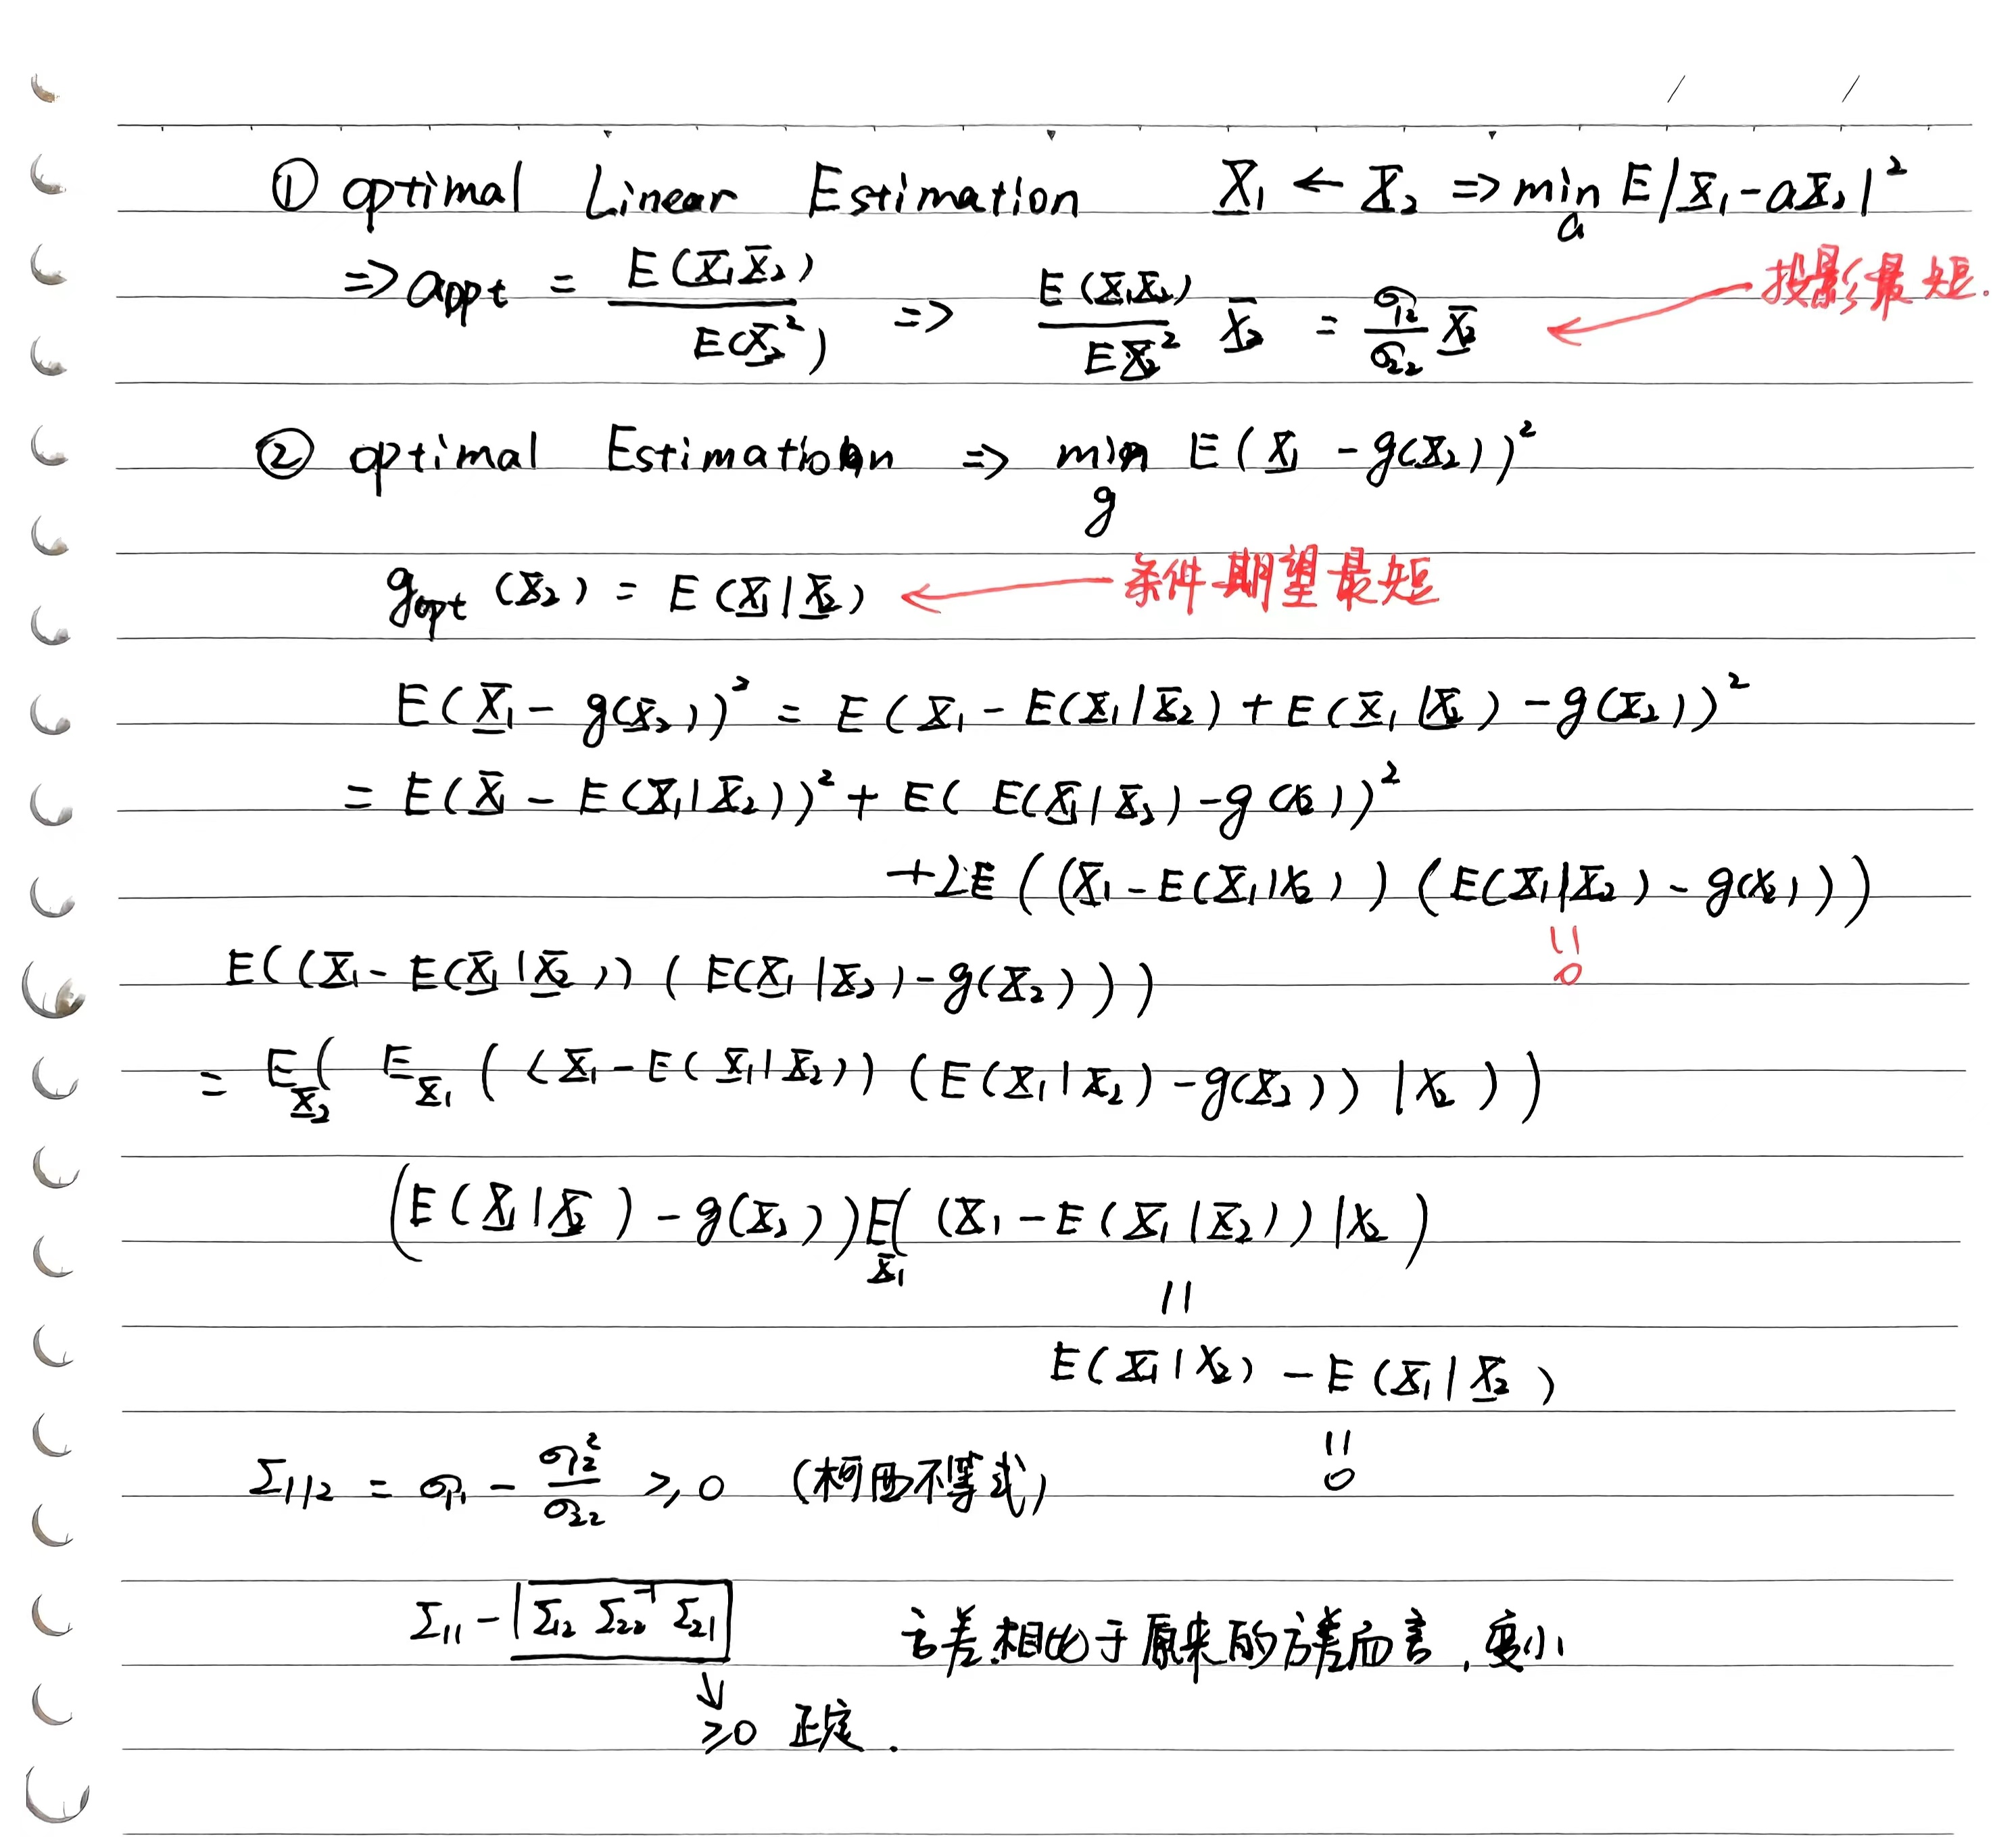 ① optimal Linear Estimation X₁ ← X₂ ⇒ min_a E|X₁-aX₂|²
⇒ a_opt = E(X₁X₂)/E(X₂²) ⇒ E(X₁X₂)/EX₂² X₂ = σ₁₂/σ₂₂ X₂ ← 投影最短.
② optimal Estimation ⇒ min_g E(X₁ - g(X₂))²
g_opt(X₂) = E(X₁|X₂) ← 条件期望最短
E(X₁ - g(X₂))² = E(X₁ - E(X₁|X₂) + E(X₁|X₂) - g(X₂))²
= E(X₁ - E(X₁|X₂))² + E(E(X₁|X₂) - g(X₂))²
+2E((X₁ - E(X₁|X₂))(E(X₁|X₂) - g(X₂)))
= 0
E((X₁ - E(X₁|X₂))(E(X₁|X₂) - g(X₂)))
= E_X₂(E_X₁((X₁ - E(X₁|X₂))(E(X₁|X₂) - g(X₂))|X₂))
(E(X₁|X₂) - g(X₂))E_X₁((X₁ - E(X₁|X₂))|X₂)
=
E(X₁|X₂) - E(X₁|X₂)
= 0
Σ₁|₂ = σ₁₁ - σ₁₂²/σ₂₂ ≥ 0 (柯西不等式)
Σ₁₁ - Σ₁₂ Σ₂₂⁻¹ Σ₂₁ 方差相比于原来的方差而言,变小
↓
≥0 正定.